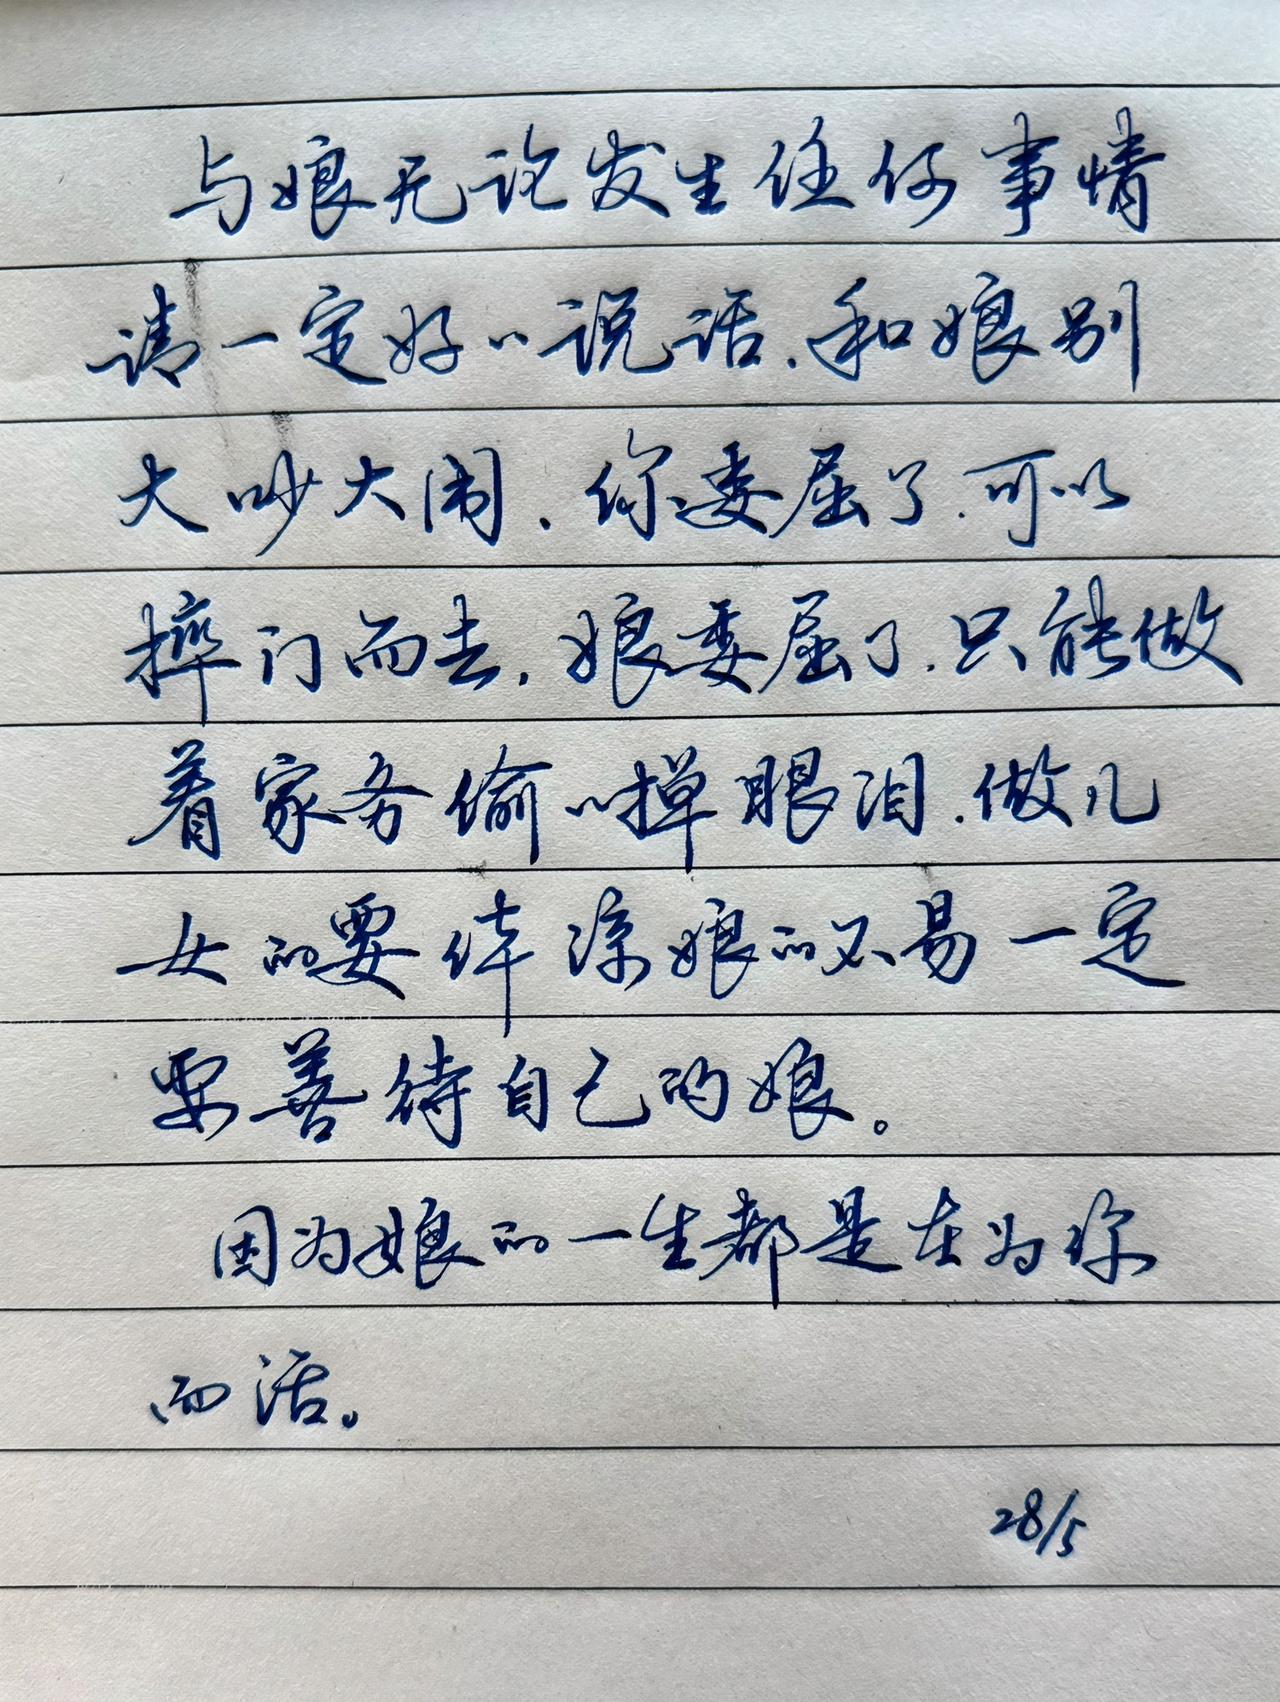 与娘无论发生任何事情
请一定好〃说话.和娘别
大吵大闹.你委屈了.可以
摔门而去.娘委屈了.只能做
着家务偷〃掉眼泪.做儿
女的要体谅娘的不易一定
要善待自己的娘。
因为娘的一生都是在为你
而活。
28/5